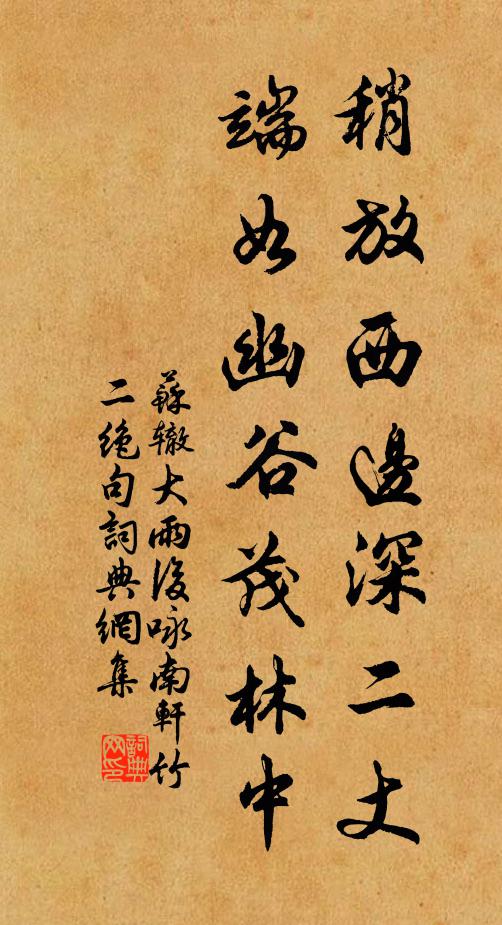 稍放西邊深二丈
端如幽谷茂林中
蘇轍大雨後咏南軒竹
二絶句詞典網集
詞典网印